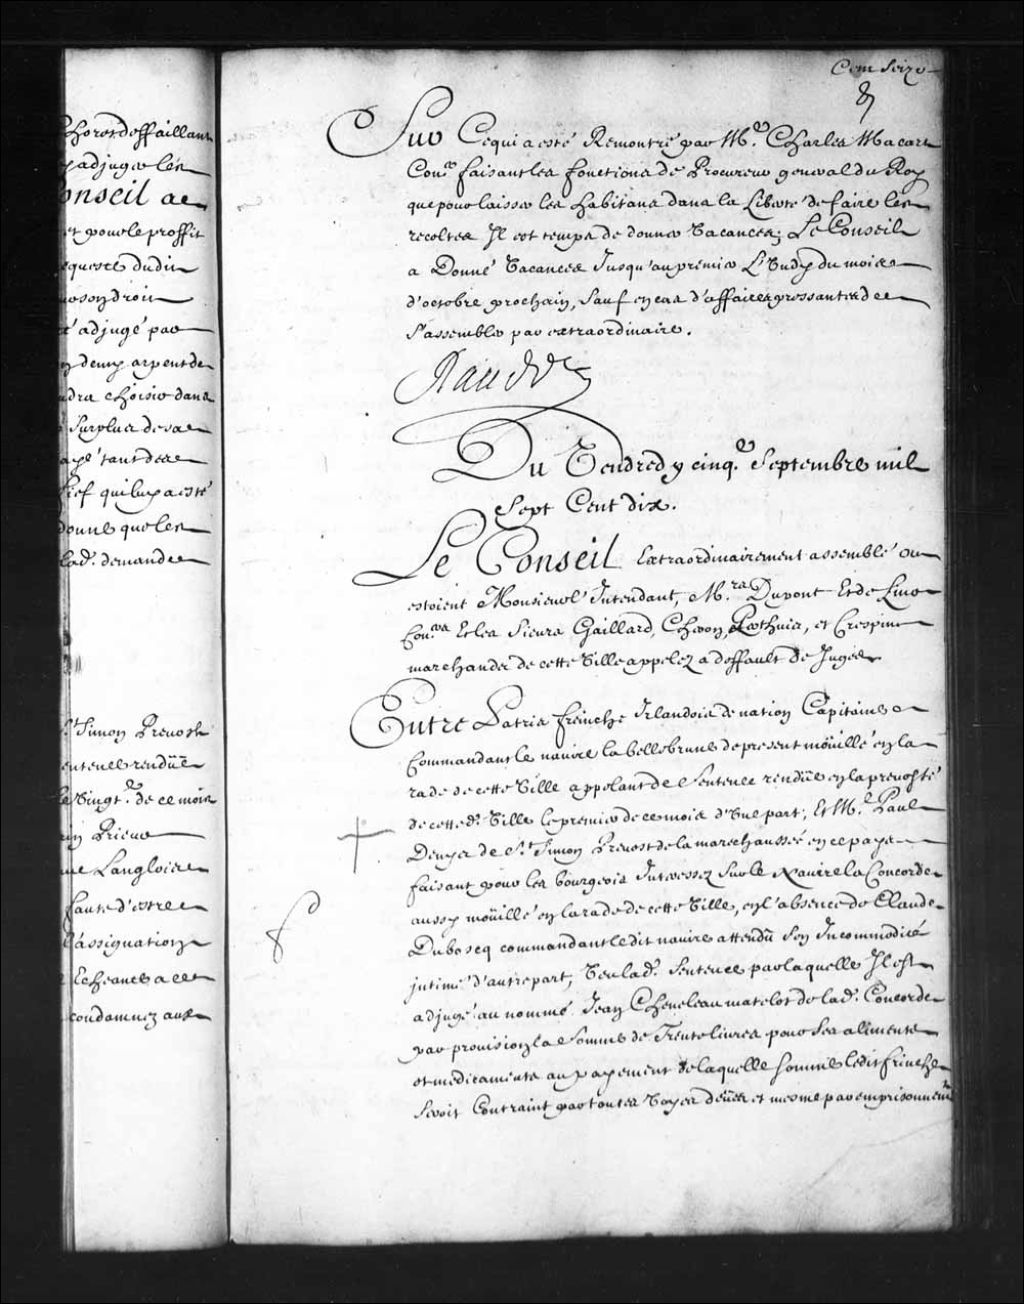 horosdeffaillant
adjuger les
onseil a
et pour le proffit
equeste dudit
son droit
adjugé par
deux arpents de
choisir dans
surplus de sa
tant de
fief qui luy a esté
donne que les
lad. demande
St. Simon Prevost
sentence rendüe
le vingt.e de ce mois
Prieur
Langlois
faute d'estre
l'assignation
Echeance a
condamnez aux
Cent seize
Sur Ce qui a esté Remontré par Me. Charles Macart
Coner. faisant les fonctions de Procureur general du Roy
que pour laisser les habitans dans la Liberté de faire les
recoltes Il est temps de donner Vacances; Le Conseil
a Donné Vacances Jusqu'au premier Lundy du mois
d'octobre prochain, sauf en cas d'affaires pressantes de
s'assembler par extraordinaire.
Raudot
Du Vendredy cinqe. Septembre mil
Sept Cent dix.
Le Conseil Extraordinairement assemblé ou
estoient Monsieur L'Intendant, Mrs. Dupont Et de Lino
Coners. Et les Sieurs Gaillard, Cheron, Perthuis, et Crespin
marchands de cette Ville appelez a deffault de Juges
Entre Patris freinche Irlandois de nation Capitaine
Commandant le navire la belle brune de present moüillé en la
rade de cette Ville appelant de Sentence rendüe en la prevosté
de cetted. Ville le premier de ce mois d'Une part; Et Me. Paul
Denys de St. Simon Prevost de la mareschaussée en ce pays
faisant pour les bourgeois Interessez sur le Navire la Concorde
aussy moüillé en la rade de cette Ville, en l'absence de Claude
Duboscq commandant ledit navire attendu son Incommodité
intimé d'autre part, Veu lad. Sentence par laquelle Il est
adjugé au nommé Jean Cheneleau matelot de lad. Concorde
par provision la Somme de Trente livres pour ses alimens
et medicamens au payement de laquelle somme ledit freinche
seroit Contraint par toutes Voyes deües et mesme par emprisonnemt.